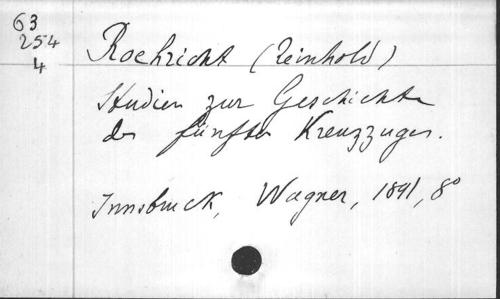 63
254
4
Roehricht (Reinhold)
Studien zur Geschichte
des fünften Kreuzzuges.
Innsbruck, Wagner, 1891, 8°